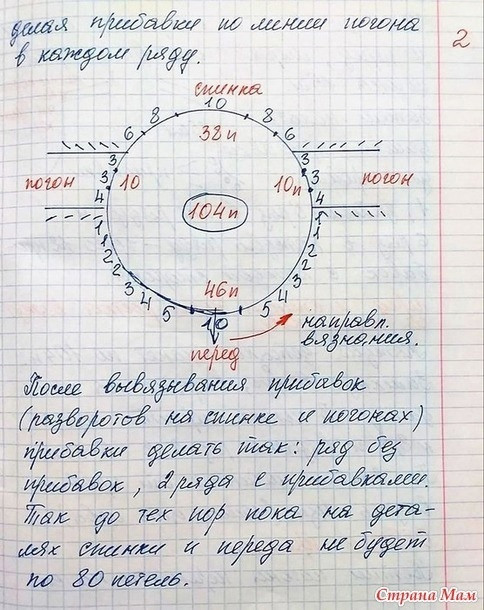 делая прибавки по линии погона
в каждом ряду.
2
спинка
10
8 8
6 6
38п
3 3
3 3
погон 10 10п погон
4 4
104п
1 1
1 1
2 2
2 2
3 3
4 4
5 5
46п
10
перед
направл.
вязания.
После вывязывания прибавок
(разворотов на спинке и погонах)
прибавки делать так: ряд без
прибавок, 2 ряда с прибавками.
Так до тех пор пока на дета-
лях спинки и переда не будет
по 80 петель.
Страна Мам